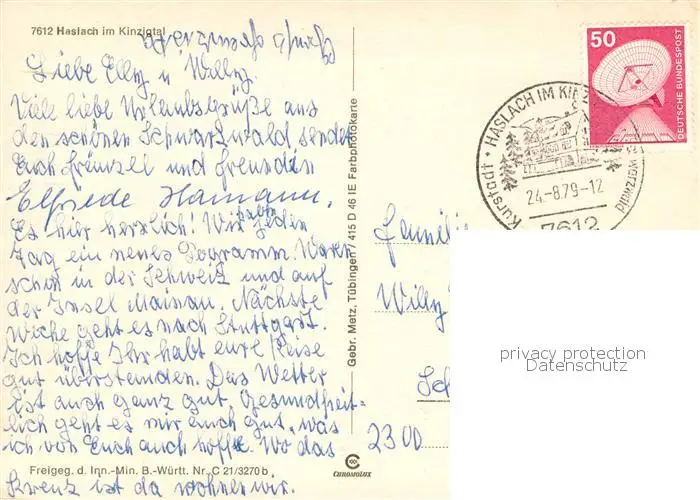 7612 Haslach im Kinzigtal
Liebe Elly u Willy.
Viele liebe Urlaubsgrüße aus
den schönen Schwarzwald sendet
Euch Fränzel und Freundin
Elfriede Hamann.
Es hier herrlich! Wir haben jeden
Tag ein neues Programm. Waren
schon in der Schweiz und auf
der Insel Mainau. Nächste
Woche geht es nach Stuttgart.
Ich hoffe Ihr habt eure Reise
gut überstanden. Das Wetter
ist auch ganz gut. Gesundheit-
lich geht es mir auch gut, was
ich von Euch auch hoffe. Wo das
Kreuz ist da wohnen wir.
Freigeg. d. Inn.-Min. B.-Württ. Nr. C 21/3270 b
Gebr. Metz, Tübingen / 415 D 46 IE Farbphotokarte
CHROMOLUX
50
DEUTSCHE BUNDESPOST
Kurstadt · HASLACH IM KINZ
24.-8.79-12
7612
Schwarzwald
Familie
Willy
2300
privacy protection
Datenschutz